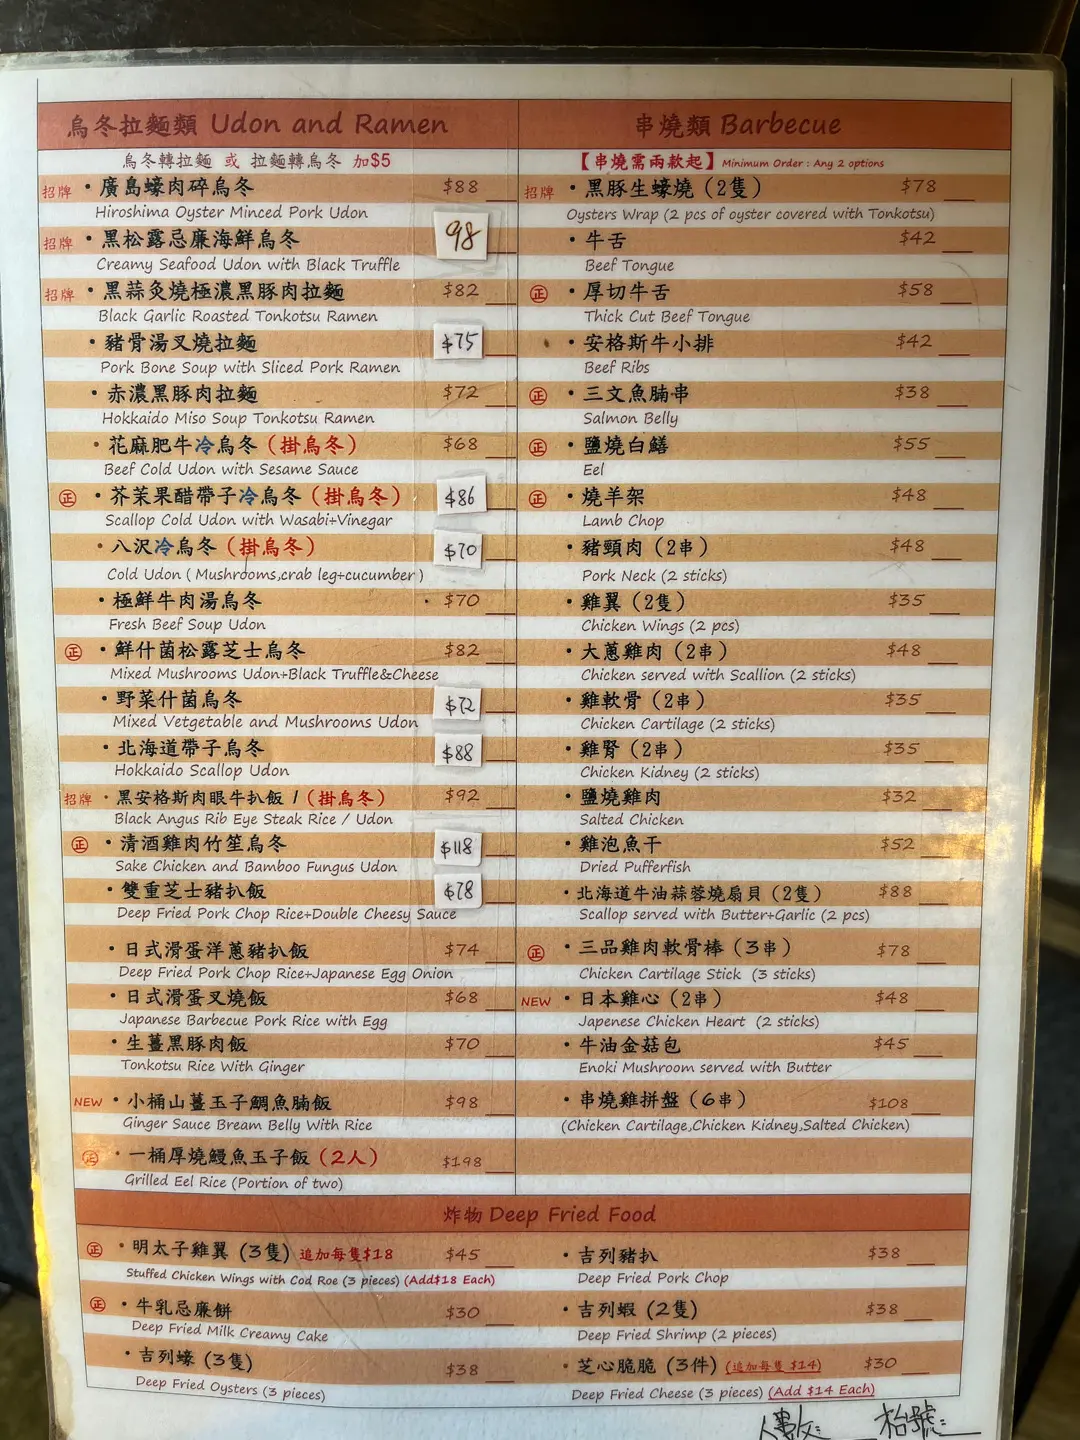 烏冬拉麵類 Udon and Ramen
烏冬轉拉麵 或 拉麵轉烏冬 加$5
招牌 ・廣島蠔肉碎烏冬 $88
Hiroshima Oyster Minced Pork Udon
招牌 ・黑松露忌廉海鮮烏冬 98
Creamy Seafood Udon with Black Truffle
招牌 ・黑蒜灸燒極濃黑豚肉拉麵 $82
Black Garlic Roasted Tonkotsu Ramen
・豬骨湯叉燒拉麵 $75
Pork Bone Soup with Sliced Pork Ramen
・赤濃黑豚肉拉麵 $72
Hokkaido Miso Soup Tonkotsu Ramen
・花麻肥牛冷烏冬（掛烏冬） $68
Beef Cold Udon with Sesame Sauce
正 ・芥茉果醋帶子冷烏冬（掛烏冬） $86
Scallop Cold Udon with Wasabi+Vinegar
・八沢冷烏冬（掛烏冬） $70
Cold Udon ( Mushrooms,crab leg+cucumber )
・極鮮牛肉湯烏冬 $70
Fresh Beef Soup Udon
正 ・鮮什菌松露芝士烏冬 $82
Mixed Mushrooms Udon+Black Truffle&Cheese
・野菜什菌烏冬 $72
Mixed Vetgetable and Mushrooms Udon
・北海道帶子烏冬 $88
Hokkaido Scallop Udon
招牌 ・黑安格斯肉眼牛扒飯 /（掛烏冬） $92
Black Angus Rib Eye Steak Rice / Udon
正 ・清酒雞肉竹笙烏冬 $118
Sake Chicken and Bamboo Fungus Udon
・雙重芝士豬扒飯 $78
Deep Fried Pork Chop Rice+Double Cheesy Sauce
・日式滑蛋洋蔥豬扒飯 $74
Deep Fried Pork Chop Rice+Japanese Egg Onion
・日式滑蛋叉燒飯 $68
Japanese Barbecue Pork Rice with Egg
・生薑黑豚肉飯 $70
Tonkotsu Rice With Ginger
NEW ・小桶山薑玉子鯛魚腩飯 $98
Ginger Sauce Bream Belly With Rice
正 ・一桶厚燒鰻魚玉子飯（2人） $198
Grilled Eel Rice (Portion of two)
串燒類 Barbecue
【串燒需兩款起】 Minimum Order : Any 2 options
招牌 ・黑豚生蠔燒（2隻） $78
Oysters Wrap (2 pcs of oyster covered with Tonkotsu)
・牛舌 $42
Beef Tongue
正 ・厚切牛舌 $58
Thick Cut Beef Tongue
・安格斯牛小排 $42
Beef Ribs
正 ・三文魚腩串 $38
Salmon Belly
正 ・鹽燒白鱔 $55
Eel
正 ・燒羊架 $48
Lamb Chop
・豬頸肉（2串） $48
Pork Neck (2 sticks)
・雞翼（2隻） $35
Chicken Wings (2 pcs)
・大蔥雞肉（2串） $48
Chicken served with Scallion (2 sticks)
・雞軟骨（2串） $35
Chicken Cartilage (2 sticks)
・雞腎（2串） $35
Chicken Kidney (2 sticks)
・鹽燒雞肉 $32
Salted Chicken
・雞泡魚干 $52
Dried Pufferfish
・北海道牛油蒜蓉燒扇貝（2隻） $88
Scallop served with Butter+Garlic (2 pcs)
正 ・三品雞肉軟骨棒（3串） $78
Chicken Cartilage Stick (3 sticks)
NEW ・日本雞心（2串） $48
Japenese Chicken Heart (2 sticks)
・牛油金菇包 $45
Enoki Mushroom served with Butter
・串燒雞拼盤（6串） $108
(Chicken Cartilage,Chicken Kidney,Salted Chicken)
炸物 Deep Fried Food
正 ・明太子雞翼（3隻）追加每隻$18 $45
Stuffed Chicken Wings with Cod Roe (3 pieces) (Add$18 Each)
正 ・牛乳忌廉餅 $30
Deep Fried Milk Creamy Cake
・吉列蠔（3隻） $38
Deep Fried Oysters (3 pieces)
・吉列豬扒 $38
Deep Fried Pork Chop
・吉列蝦（2隻） $38
Deep Fried Shrimp (2 pieces)
・芝心脆脆（3件）(追加每隻 $14) $30
Deep Fried Cheese (3 pieces) (Add $14 Each)
人數: 枱號: